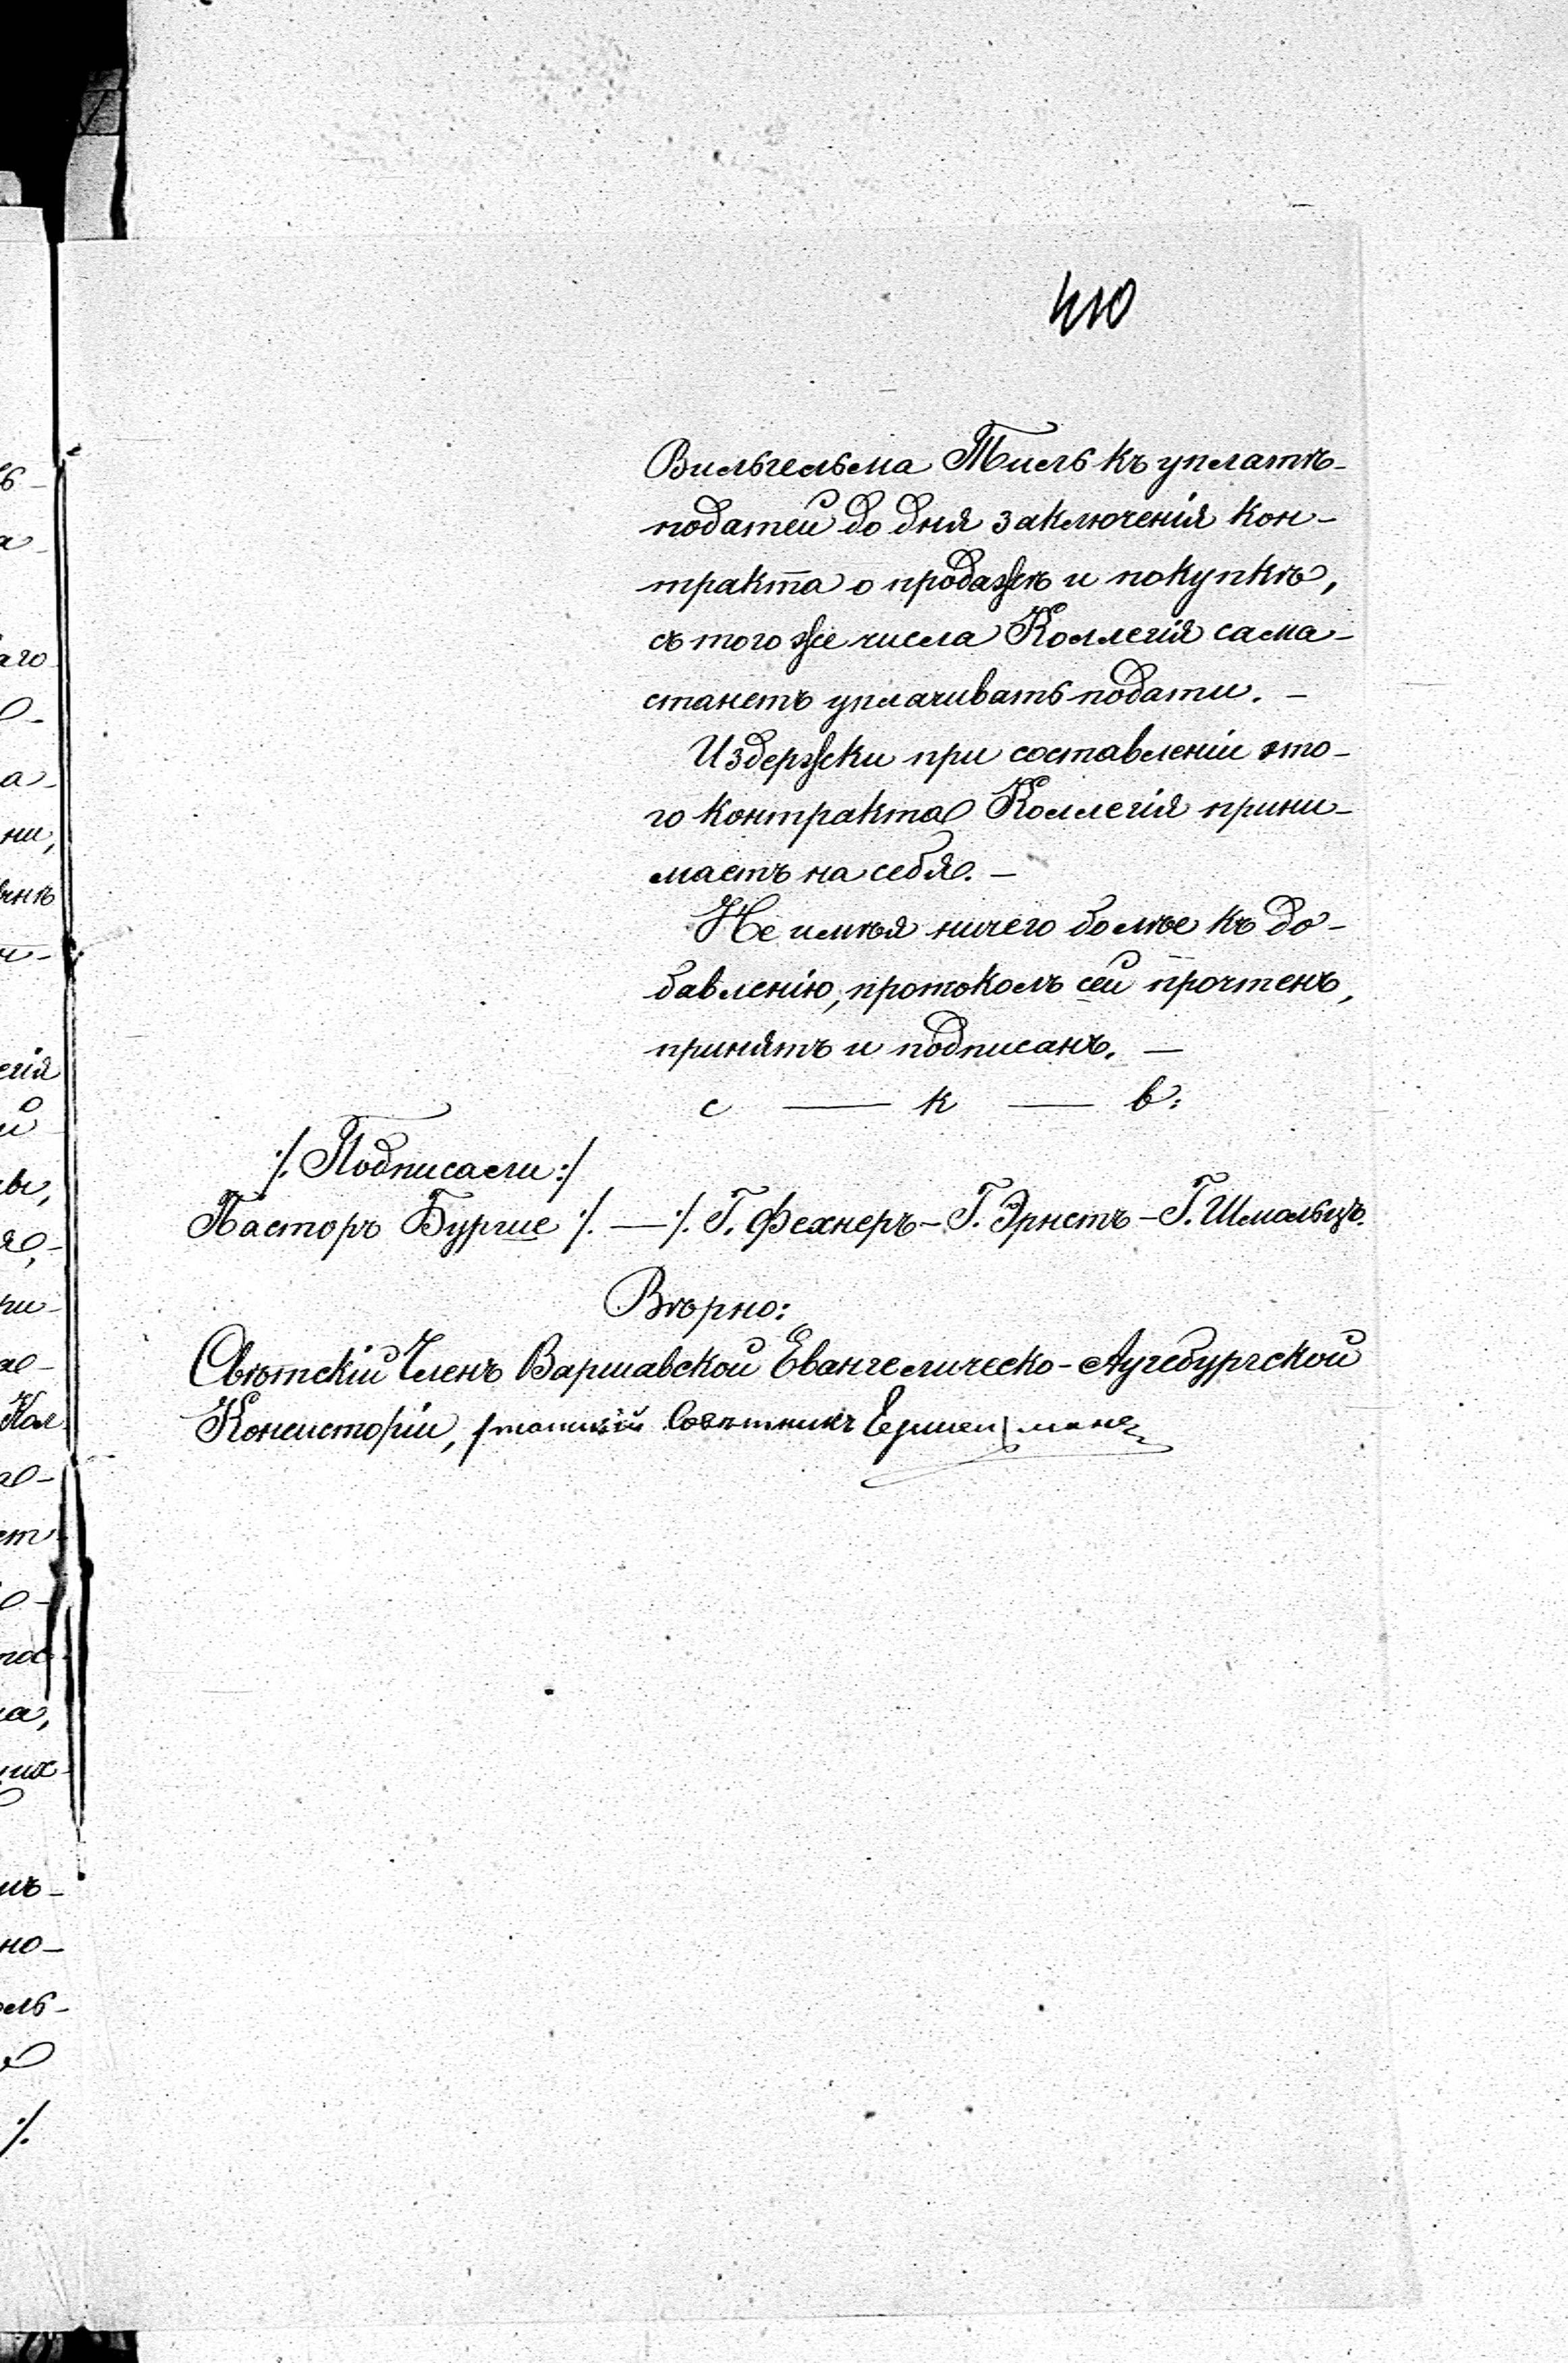 410
Вильгельма Тиль къ уплатѣ-
податей до дня заключенія кон-
тракта о продажѣ и покупкѣ,
съ того же числа Коллегія сама-
станетъ уплачивать подати. -
Издержки при составленіи это-
го контракта Коллегія прини-
маетъ на себя. -
Не имѣя ничего болѣе къ до-
бавленію, протоколъ сей прочтенъ,
принятъ и подписанъ. —
с — к — в:
:/. Подписали :/
Пасторъ Бурше :/. — :/. Г. Фехнеръ - Г. Эрнстъ - Г. Шмальцъ.
Вѣрно:
Свѣтскій Членъ Варшавской Евангелическо-Аугсбургской
Консисторіи, Совѣтникъ